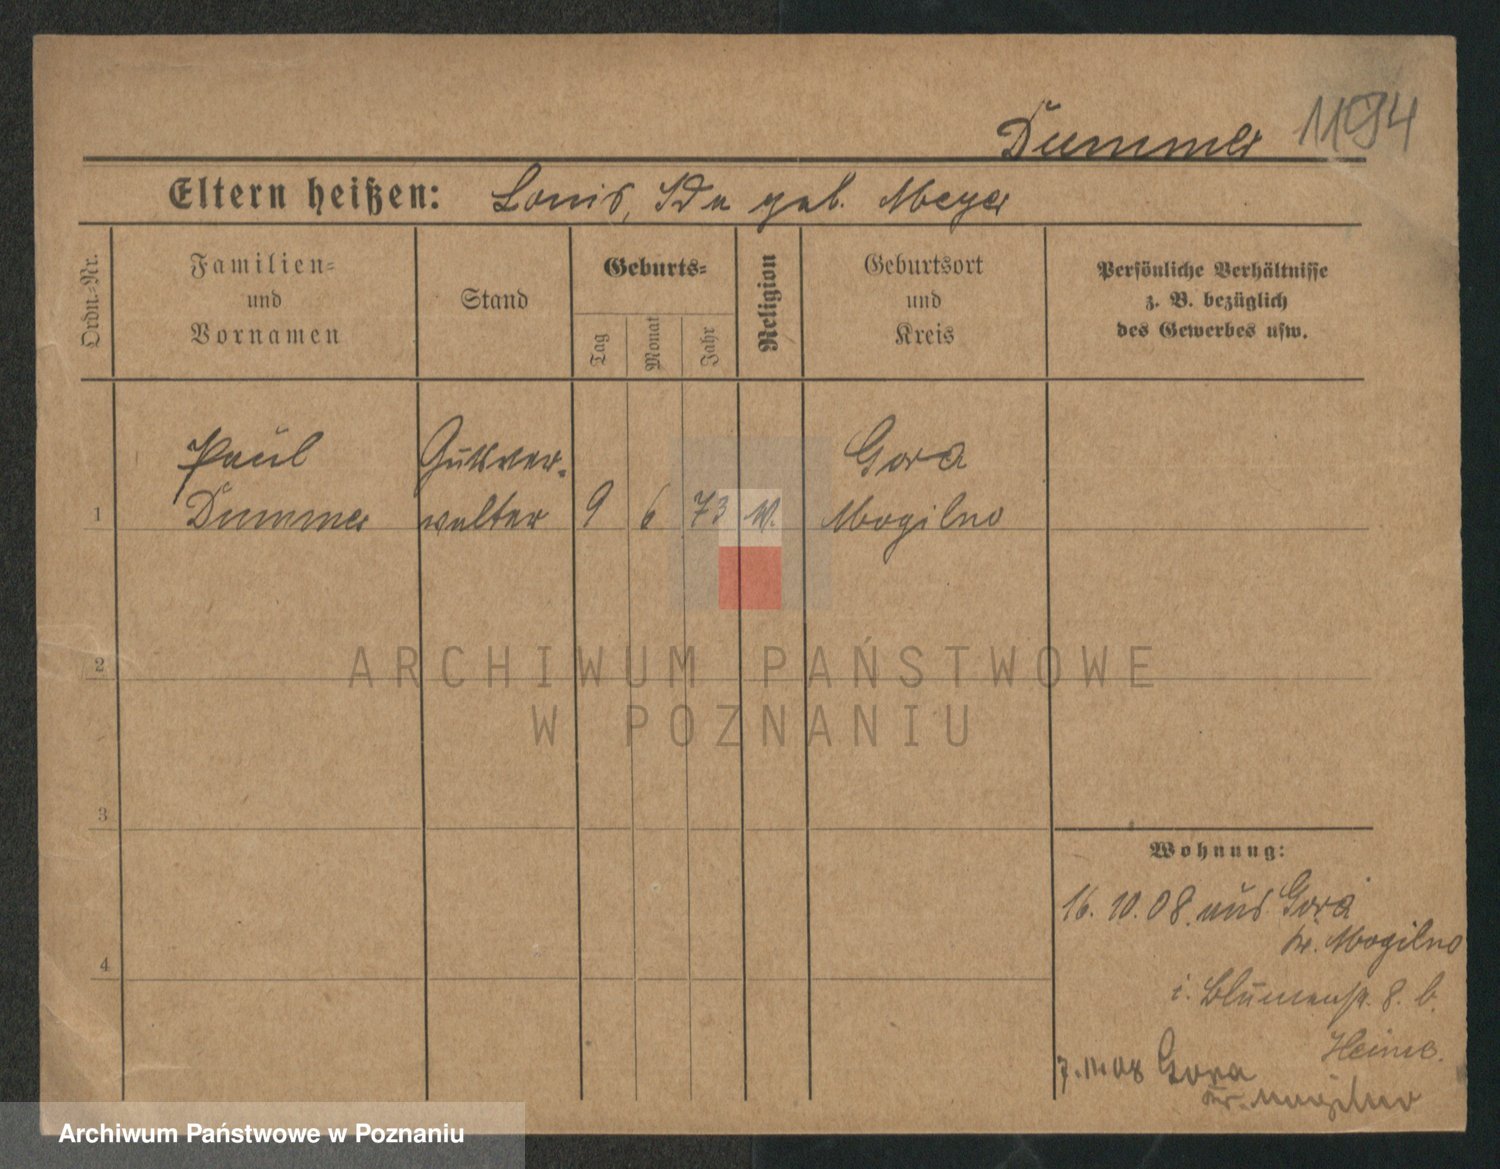 Dummer 1194
Eltern heißen: Louis, Ida geb. Meyer
Ordn.-Nr.
Familien-
und
Vornamen
Stand
Geburts-
Tag
Monat
Jahr
Religion
Geburtsort
und
Kreis
Persönliche Verhältnisse
z. B. bezüglich
des Gewerbes usw.
Paul
Dummer
Gutsver-
walter
1
9
6
73
Gora
Mogilno
2
3
4
ARCHIWUM PAŃSTWOWE
W POZNANIU
Wohnung:
16. 10. 08. aus Gora
Kr. Mogilno
i. Blumenstr. 8. b.
Heine.
7. 11. 08 Gora
Kr. Mogilno
Archiwum Państwowe w Poznaniu